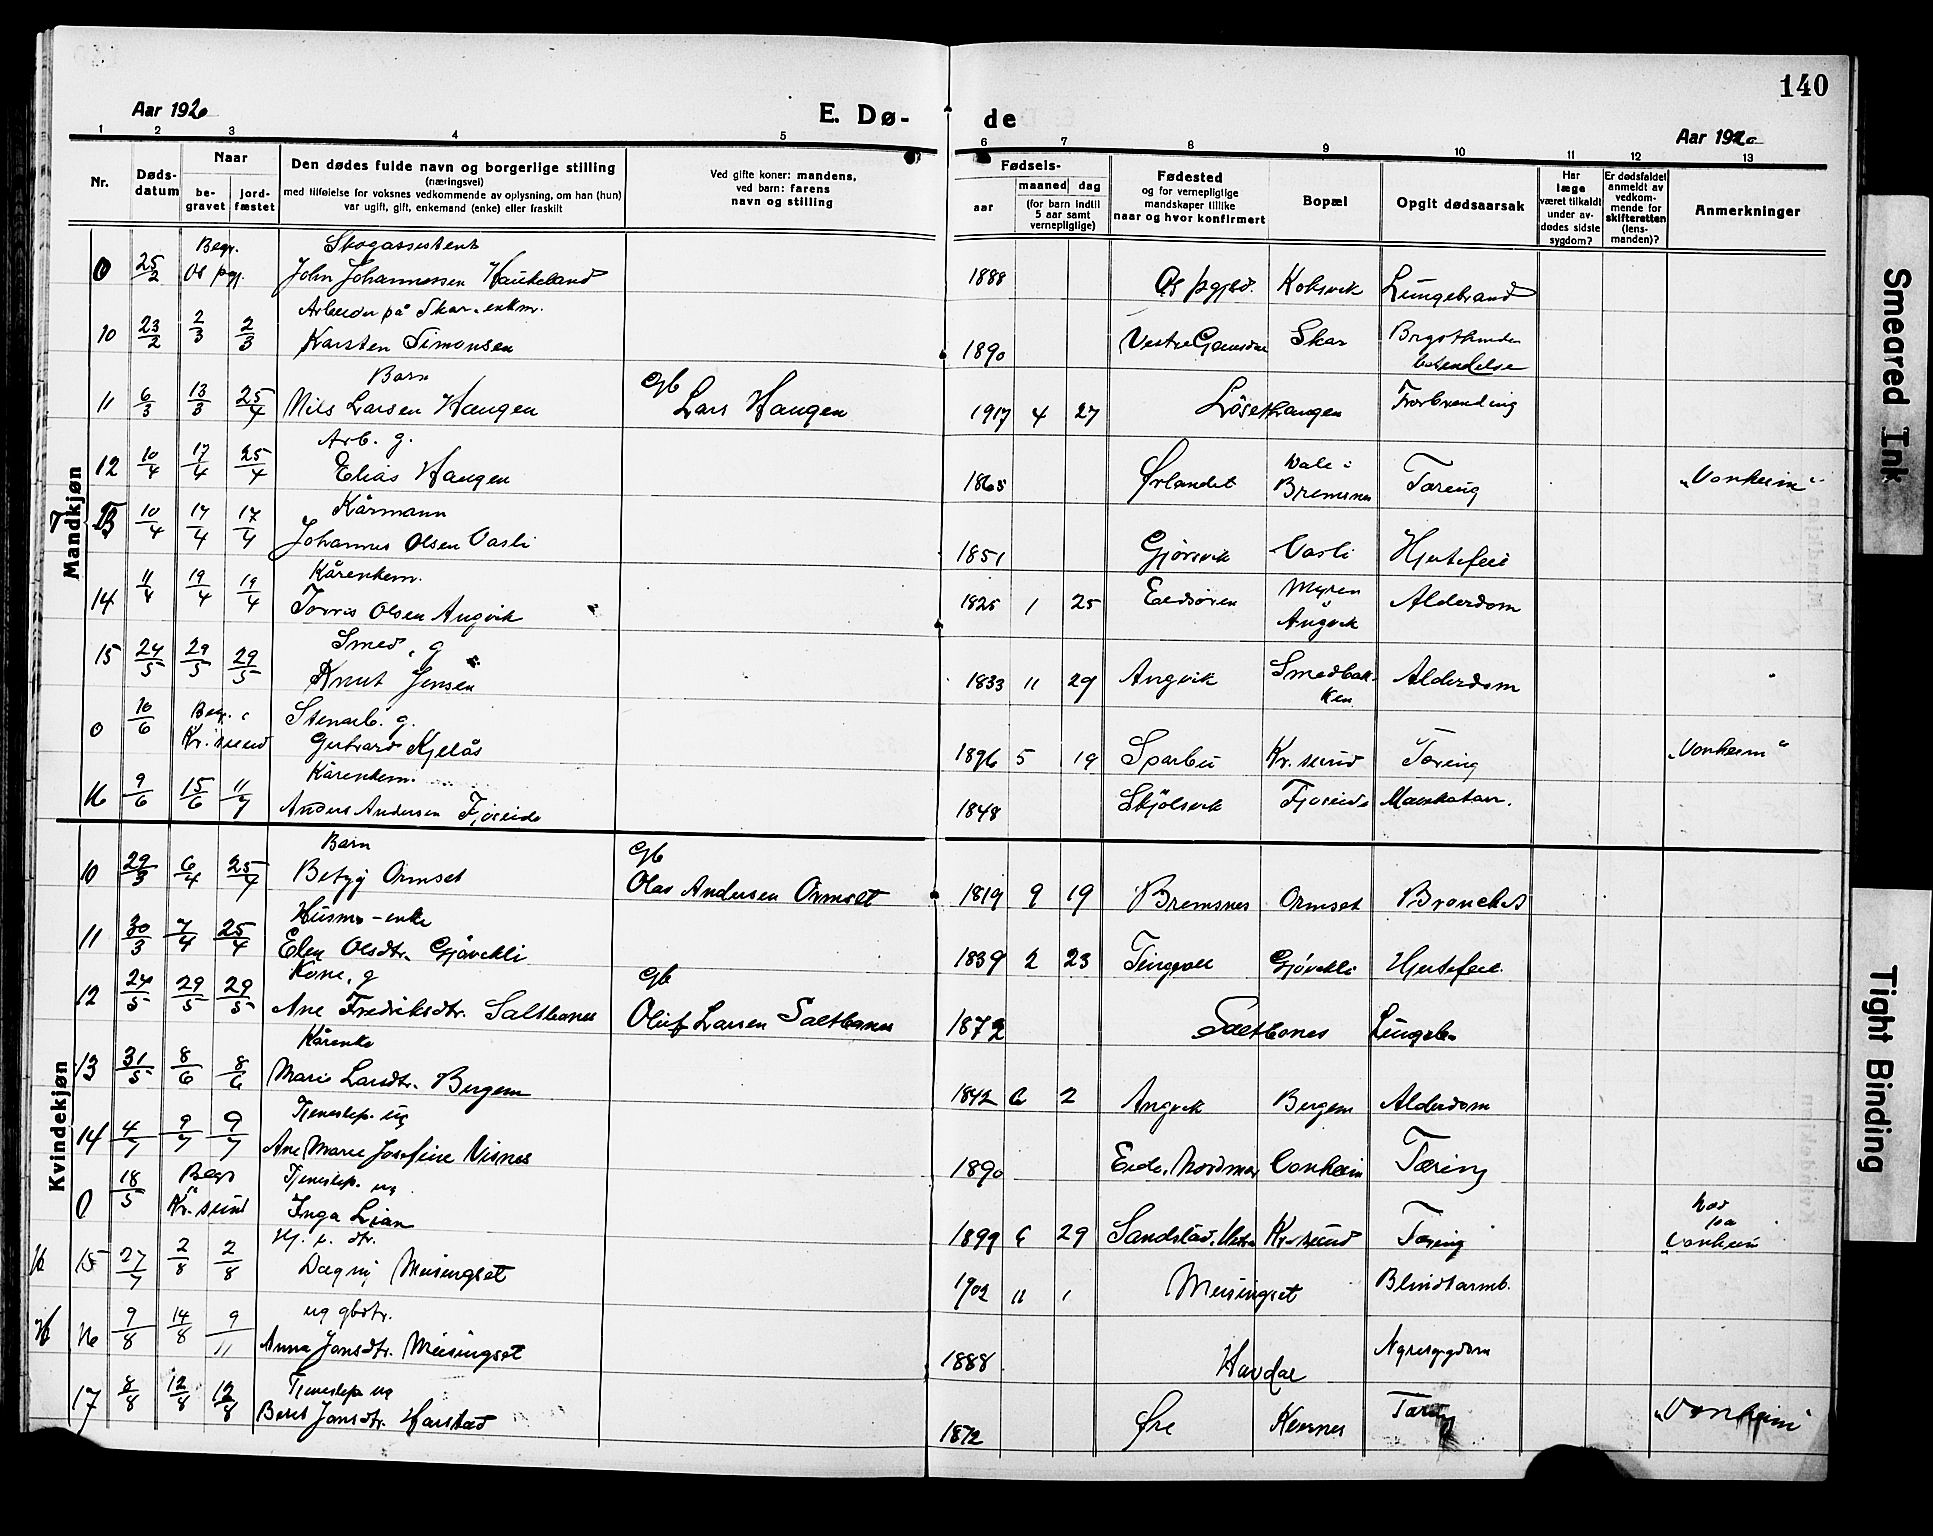 140
Aar 1920
E. Dø- de
Aar 1920
1 2 3 4 5 6 7 8 9 10 11 12 13
Nr.
Døds-
datum
Naar
be-
gravet
jord-
fæstet
Den dødes fulde navn og borgerlige stilling
(næringsvei)
med tilføielse for voksnes vedkommende av oplysning, om han (hun)
var ugift, gift, enkemand (enke) eller fraskilt
Ved gifte koner: mandens,
ved barn: farens
navn og stilling
Fødsels-
aar
maaned
dag
(for barn indtil
5 aar samt
vernepligtige)
Fødested
og for vernepligtige
mandskaper tillike
naar og hvor konfirmert
Bopæl
Opgit dødsaarsak
Har
læge
været tilkaldt
under av-
dødes sidste
sygdom?
Er dødsfaldet
anmeldt av
vedkom-
mende for
skifteretten
(lens-
manden)?
Anmerkninger
Mandkjøn
0 25/2 Begr. Os pgj. Skogassistent
John Johannessen Haukeland 1888 Os pgjld. Koksvik Lungebrand
10 23/2 2/3 2/3 Arbeider på Skar. enkm.
Karsten Simonsen 1890 Skar
11 6/3 13/3 25/4 Barn
Nils Larsen Haugen Gb Lars Haugen 1917 4 27 Forbrending
12 10/4 17/4 25/4 Arb. g.
Elias Haugen 1865 Ørlandet Bremsnes Tæring „Vonheim"
13 10/4 17/4 17/4 Kårmann
Johannes Olsen Vasli 1851 Gjørsvik Vasli Hjertefeil
14 11/4 19/4 19/4 Kårenkem.
Torris Olsen Angvik 1825 1 25 Eidsøren Myren Angvik Alderdom
15 24/5 29/5 29/5 Smed, g
Knut Jensen 1833 11 29 Angvik Smedbak-
ken Alderdom
0 10/6 Begr. i Kr.sund Stenarb. g.
Kjelås 1896 5 19 Sparbu Kr.sund Tæring „Vonheim"
16 9/6 15/6 11/7 Kårenkem.
Anders Andersen Fjøseide 1848 Skjølsvik Fjøseide Mavekatarr.
Kvindekjøn
10 29/3 6/4 25/4 Barn
Betzy Ormset Gb
Olas Andersen Ormset 1819 9 19 Bremsnes Ormset Bronchit
11 30/3 7/4 25/4 Husm-enke
Elen Olsdtr. Gjøvikli 1839 2 23 Tingvoll Gjøvikli Hjertefeil.
12 24/5 29/5 29/5 Kone, g
Ane Fredriksdtr. Saltbones Gb
Oluf Larsen Saltbones 1872 Saltbones Lungeb.
13 31/5 8/6 8/6 Kårenke
Marie Larsdtr. Bergem 1842 6 2 Angvik Bergem Alderdom
14 4/7 9/7 9/7 Tjenestep. ug
Ane Marie Josefine Visnes 1890 Eide, Nordmør Vonheim Tæring
0 18/5 Begr. Kr.sund Tjenestep. ug
Inga Lian 1899 6 29 Sandstad, Kr.sund Tæring „Vonheim
15 27/7 2/8 2/8
Dagny Meisingset 1902 11 1 Meisingset Blindtarmb.
16 9/8 14/8 9/11 ug gbdtr.
Anna Jonsdtr. Meisingset 1888 Nyresygdom
17 8/8 12/8 12/8 Tjenestep ug
Beret Jonsdtr. Harstad 1872 Øre Kvernes Tæring „Vonheim"
Smeared Ink
Tight Binding